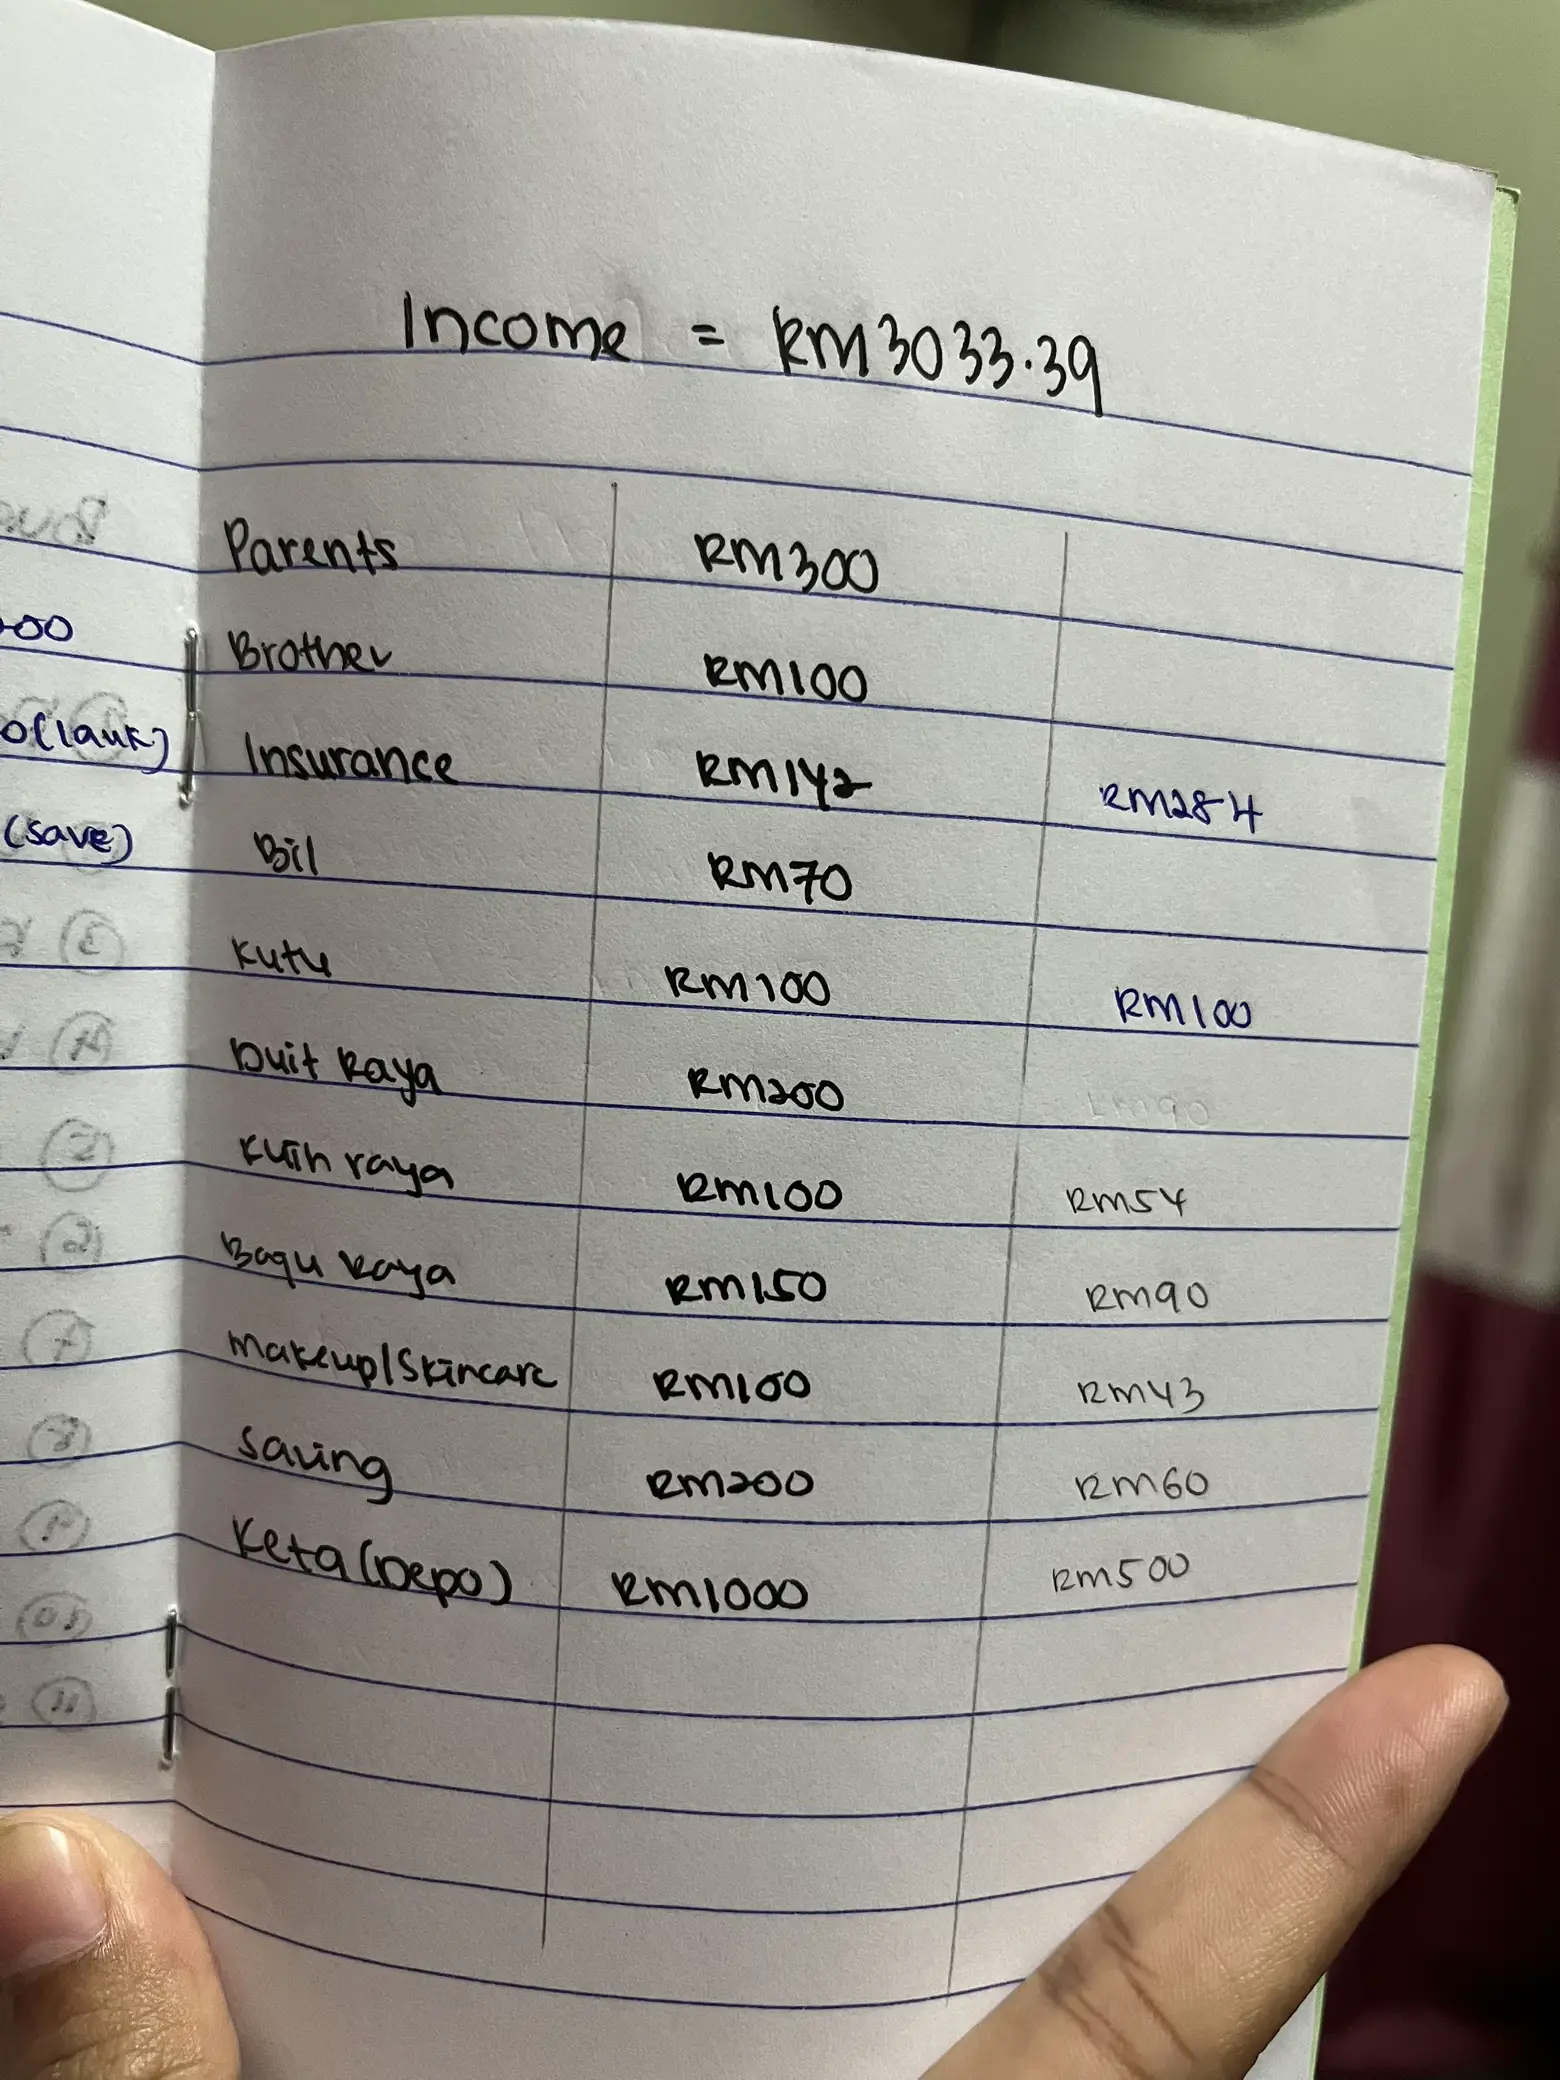 00
(lauk)
(save)
Income = RM3033.39
Parents RM300
Brother RM100
Insurance RM142 RM284
Bil RM70
Kutu RM100 RM100
Duit Raya RM200 RM90
Kuih raya RM100 RM54
Baju Raya RM150 RM90
Makeup/Skincare RM100 RM43
Saving RM200 RM60
Keta (Depo) RM1000 RM500